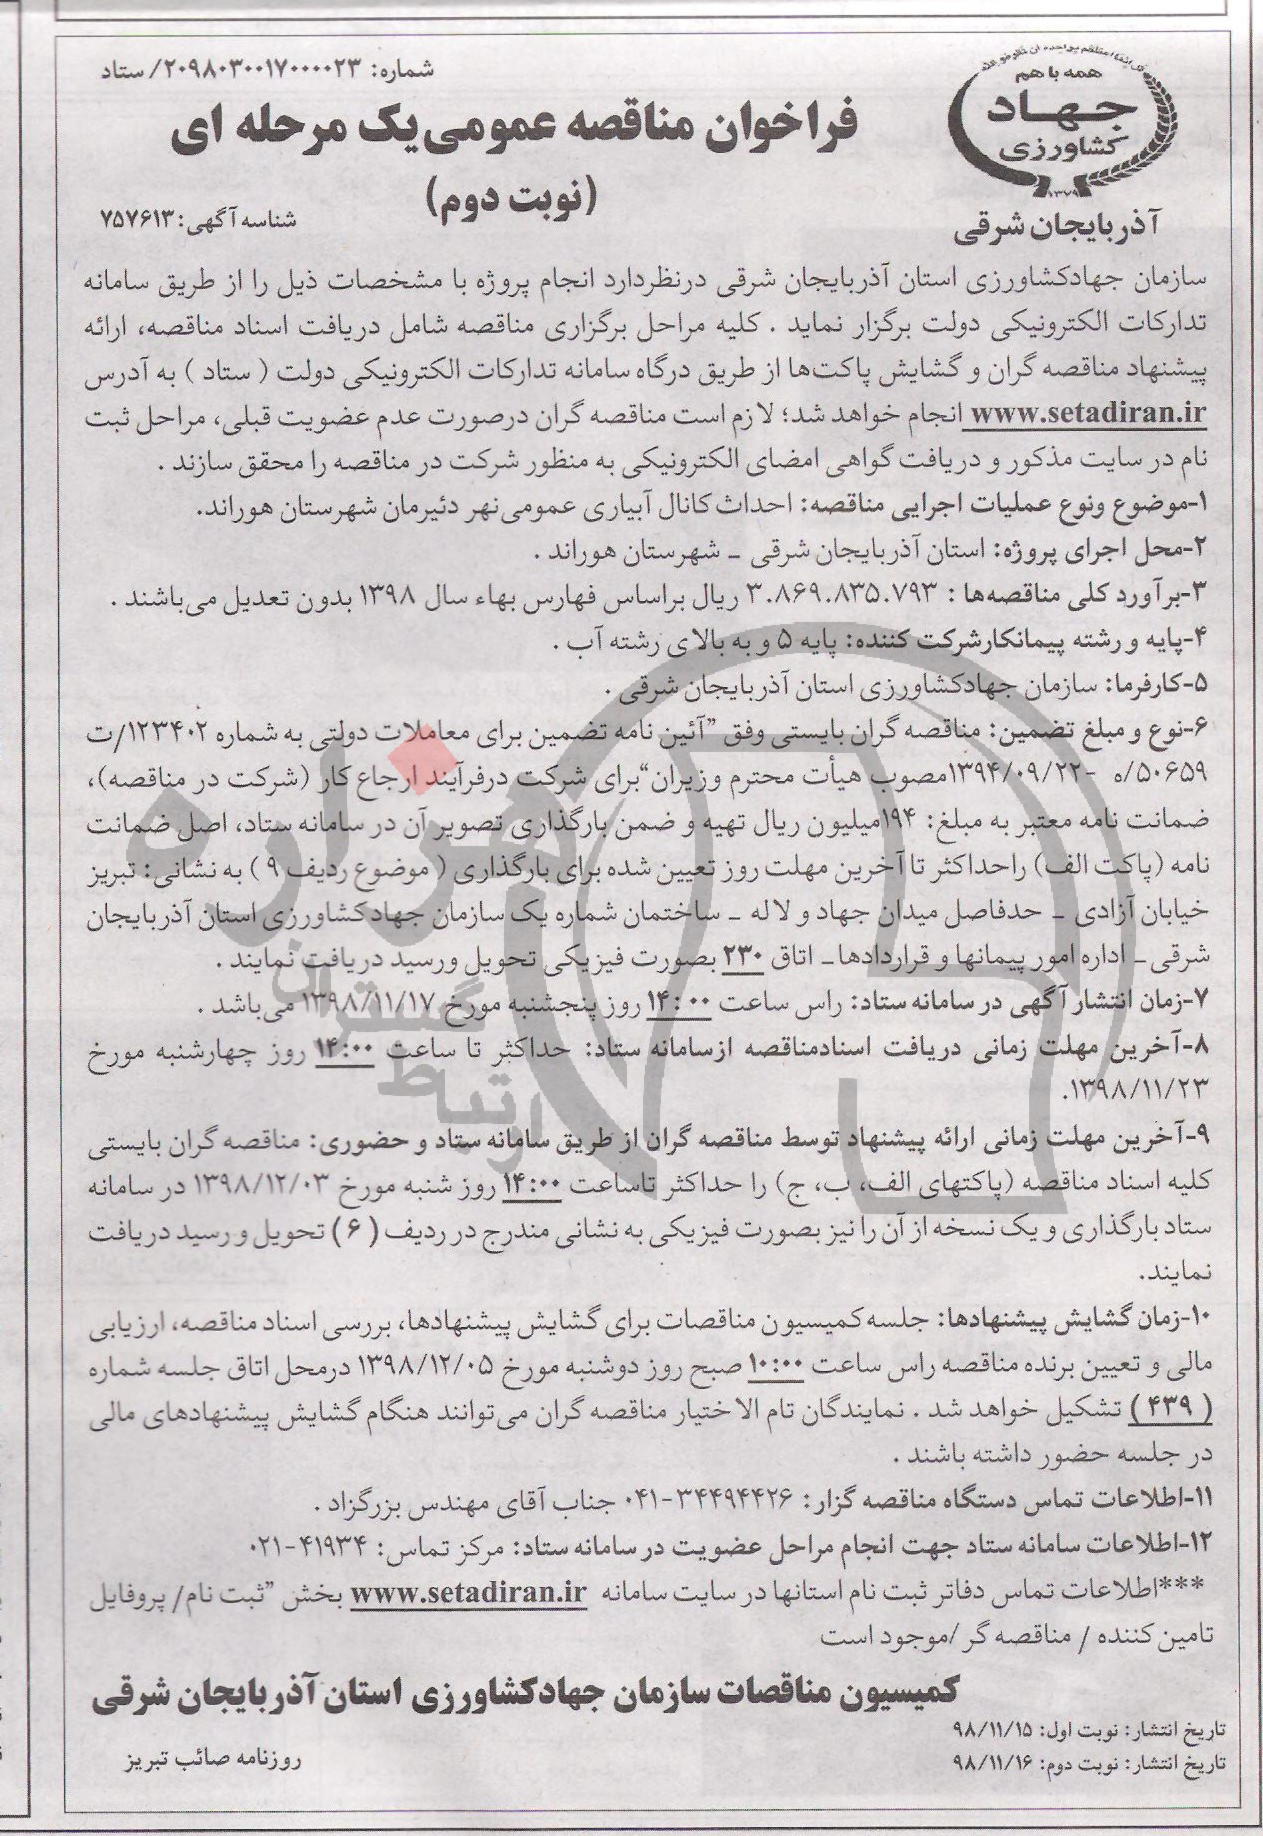 شماره: ۲۰۹۸۰۳۰۰۱۷۰۰۰۰۲۳/ ستاد
همه با هم
جهاد
کشاورزی
۱۳۷۹
آذربایجان شرقی
فراخوان مناقصه عمومی یک مرحله ای
(نوبت دوم)
شناسه آگهی: ۷۵۷۶۱۳
سازمان جهادکشاورزی استان آذربایجان شرقی درنظردارد انجام پروژه با مشخصات ذیل را از طریق سامانه
تدارکات الکترونیکی دولت برگزار نماید . کلیه مراحل برگزاری مناقصه شامل دریافت اسناد مناقصه، ارائه
پیشنهاد مناقصه گران و گشایش پاکت‌ها از طریق درگاه سامانه تدارکات الکترونیکی دولت ( ستاد ) به آدرس
www.setadiran.ir انجام خواهد شد؛ لازم است مناقصه گران درصورت عدم عضویت قبلی، مراحل ثبت
نام در سایت مذکور و دریافت گواهی امضای الکترونیکی به منظور شرکت در مناقصه را محقق سازند .
۱-موضوع ونوع عملیات اجرایی مناقصه: احداث کانال آبیاری عمومی نهر دئیرمان شهرستان هوراند.
۲-محل اجرای پروژه: استان آذربایجان شرقی ـ شهرستان هوراند .
۳-برآورد کلی مناقصه‌ها : ۳.۸۶۹.۸۳۵.۷۹۳ ریال براساس فهارس بهاء سال ۱۳۹۸ بدون تعدیل می‌باشند .
۴-پایه و رشته پیمانکارشرکت کننده: پایه ۵ و به بالای رشته آب .
۵-کارفرما: سازمان جهادکشاورزی استان آذربایجان شرقی .
۶-نوع و مبلغ تضمین: مناقصه گران بایستی وفق "آئین نامه تضمین برای معاملات دولتی به شماره ۱۲۳۴۰۲/ت
۵۰۶۵۹/ه -۱۳۹۴/۰۹/۲۲مصوب هیأت محترم وزیران"برای شرکت درفرآیند ارجاع کار (شرکت در مناقصه)،
ضمانت نامه معتبر به مبلغ: ۱۹۴میلیون ریال تهیه و ضمن بارگذاری تصویر آن در سامانه ستاد، اصل ضمانت
نامه (پاکت الف) راحداکثر تا آخرین مهلت روز تعیین شده برای بارگذاری ( موضوع ردیف ۹ ) به نشانی: تبریز
خیابان آزادی ـ حدفاصل میدان جهاد و لاله ـ ساختمان شماره یک سازمان جهادکشاورزی استان آذربایجان
شرقی ـ اداره امور پیمانها و قراردادها ـ اتاق ۲۳۰ بصورت فیزیکی تحویل ورسید دریافت نمایند .
۷-زمان انتشار آگهی در سامانه ستاد: راس ساعت ۱۴:۰۰ روز پنجشنبه مورخ ۱۳۹۸/۱۱/۱۷ می‌باشد .
۸-آخرین مهلت زمانی دریافت اسنادمناقصه ازسامانه ستاد: حداکثر تا ساعت ۱۴:۰۰ روز چهارشنبه مورخ
۱۳۹۸/۱۱/۲۳.
۹-آخرین مهلت زمانی ارائه پیشنهاد توسط مناقصه گران از طریق سامانه ستاد و حضوری: مناقصه گران بایستی
کلیه اسناد مناقصه (پاکتهای الف، ب، ج) را حداکثر تاساعت ۱۴:۰۰ روز شنبه مورخ ۱۳۹۸/۱۲/۰۳ در سامانه
ستاد بارگذاری و یک نسخه از آن را نیز بصورت فیزیکی به نشانی مندرج در ردیف ( ۶ ) تحویل و رسید دریافت
نمایند.
۱۰-زمان گشایش پیشنهادها: جلسه کمیسیون مناقصات برای گشایش پیشنهادها، بررسی اسناد مناقصه، ارزیابی
مالی و تعیین برنده مناقصه راس ساعت ۱۰:۰۰ صبح روز دوشنبه مورخ ۱۳۹۸/۱۲/۰۵ درمحل اتاق جلسه شماره
( ۴۳۹ ) تشکیل خواهد شد . نمایندگان تام الاختیار مناقصه گران می‌توانند هنگام گشایش پیشنهادهای مالی
در جلسه حضور داشته باشند .
۱۱-اطلاعات تماس دستگاه مناقصه گزار: ۳۴۴۹۴۴۲۶-۰۴۱ جناب آقای مهندس بزرگزاد .
۱۲-اطلاعات سامانه ستاد جهت انجام مراحل عضویت در سامانه ستاد: مرکز تماس: ۴۱۹۳۴-۰۲۱
***اطلاعات تماس دفاتر ثبت نام استانها در سایت سامانه www.setadiran.ir بخش "ثبت نام/ پروفایل
تامین کننده / مناقصه گر /موجود است
کمیسیون مناقصات سازمان جهادکشاورزی استان آذربایجان شرقی
تاریخ انتشار: نوبت اول: ۹۸/۱۱/۱۵
تاریخ انتشار: نوبت دوم: ۹۸/۱۱/۱۶
روزنامه صائب تبریز
هزاره
ارتباط گستران